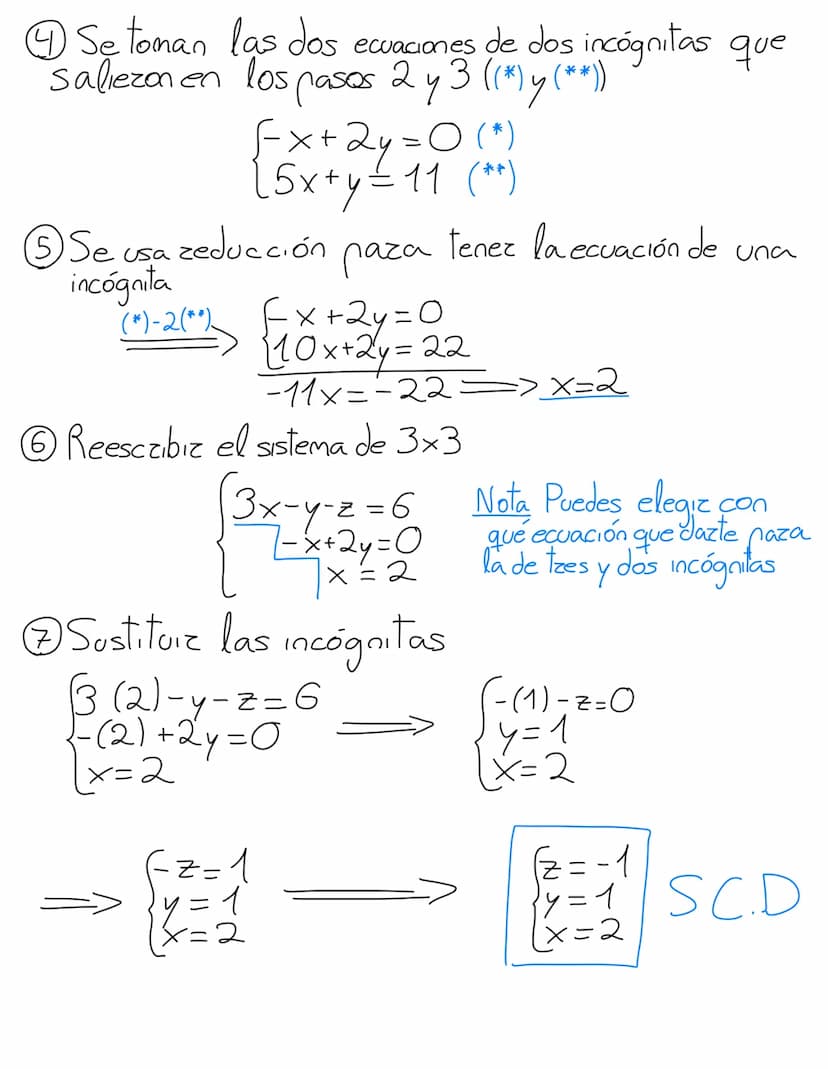 ④ Se toman las dos ecuaciones de dos incógnitas que
salieron en los pasos 2 y 3 ((*) y (**))
-x+2y=0 (*)
5x+y=11 (**)
⑤ Se usa reducción para tener la ecuación de una
incógnita
(*)-2(**)
-x+2y=0
10x+2y=22
-11x=-22 ⟹ x=2
⑥ Reescribir el sistema de 3x3
3x-y-z=6
-x+2y=0
x=2
Nota Puedes elegir con
qué ecuación que darte para
la de tres y dos incógnitas
⑦ Sustituir las incógnitas
3(2)-y-z=6
-(2)+2y=0
x=2
⟹
-(1)-z=0
y=1
x=2
⟹
-z=1
y=1
x=2
⟹
z=-1
y=1
x=2
S.C.D